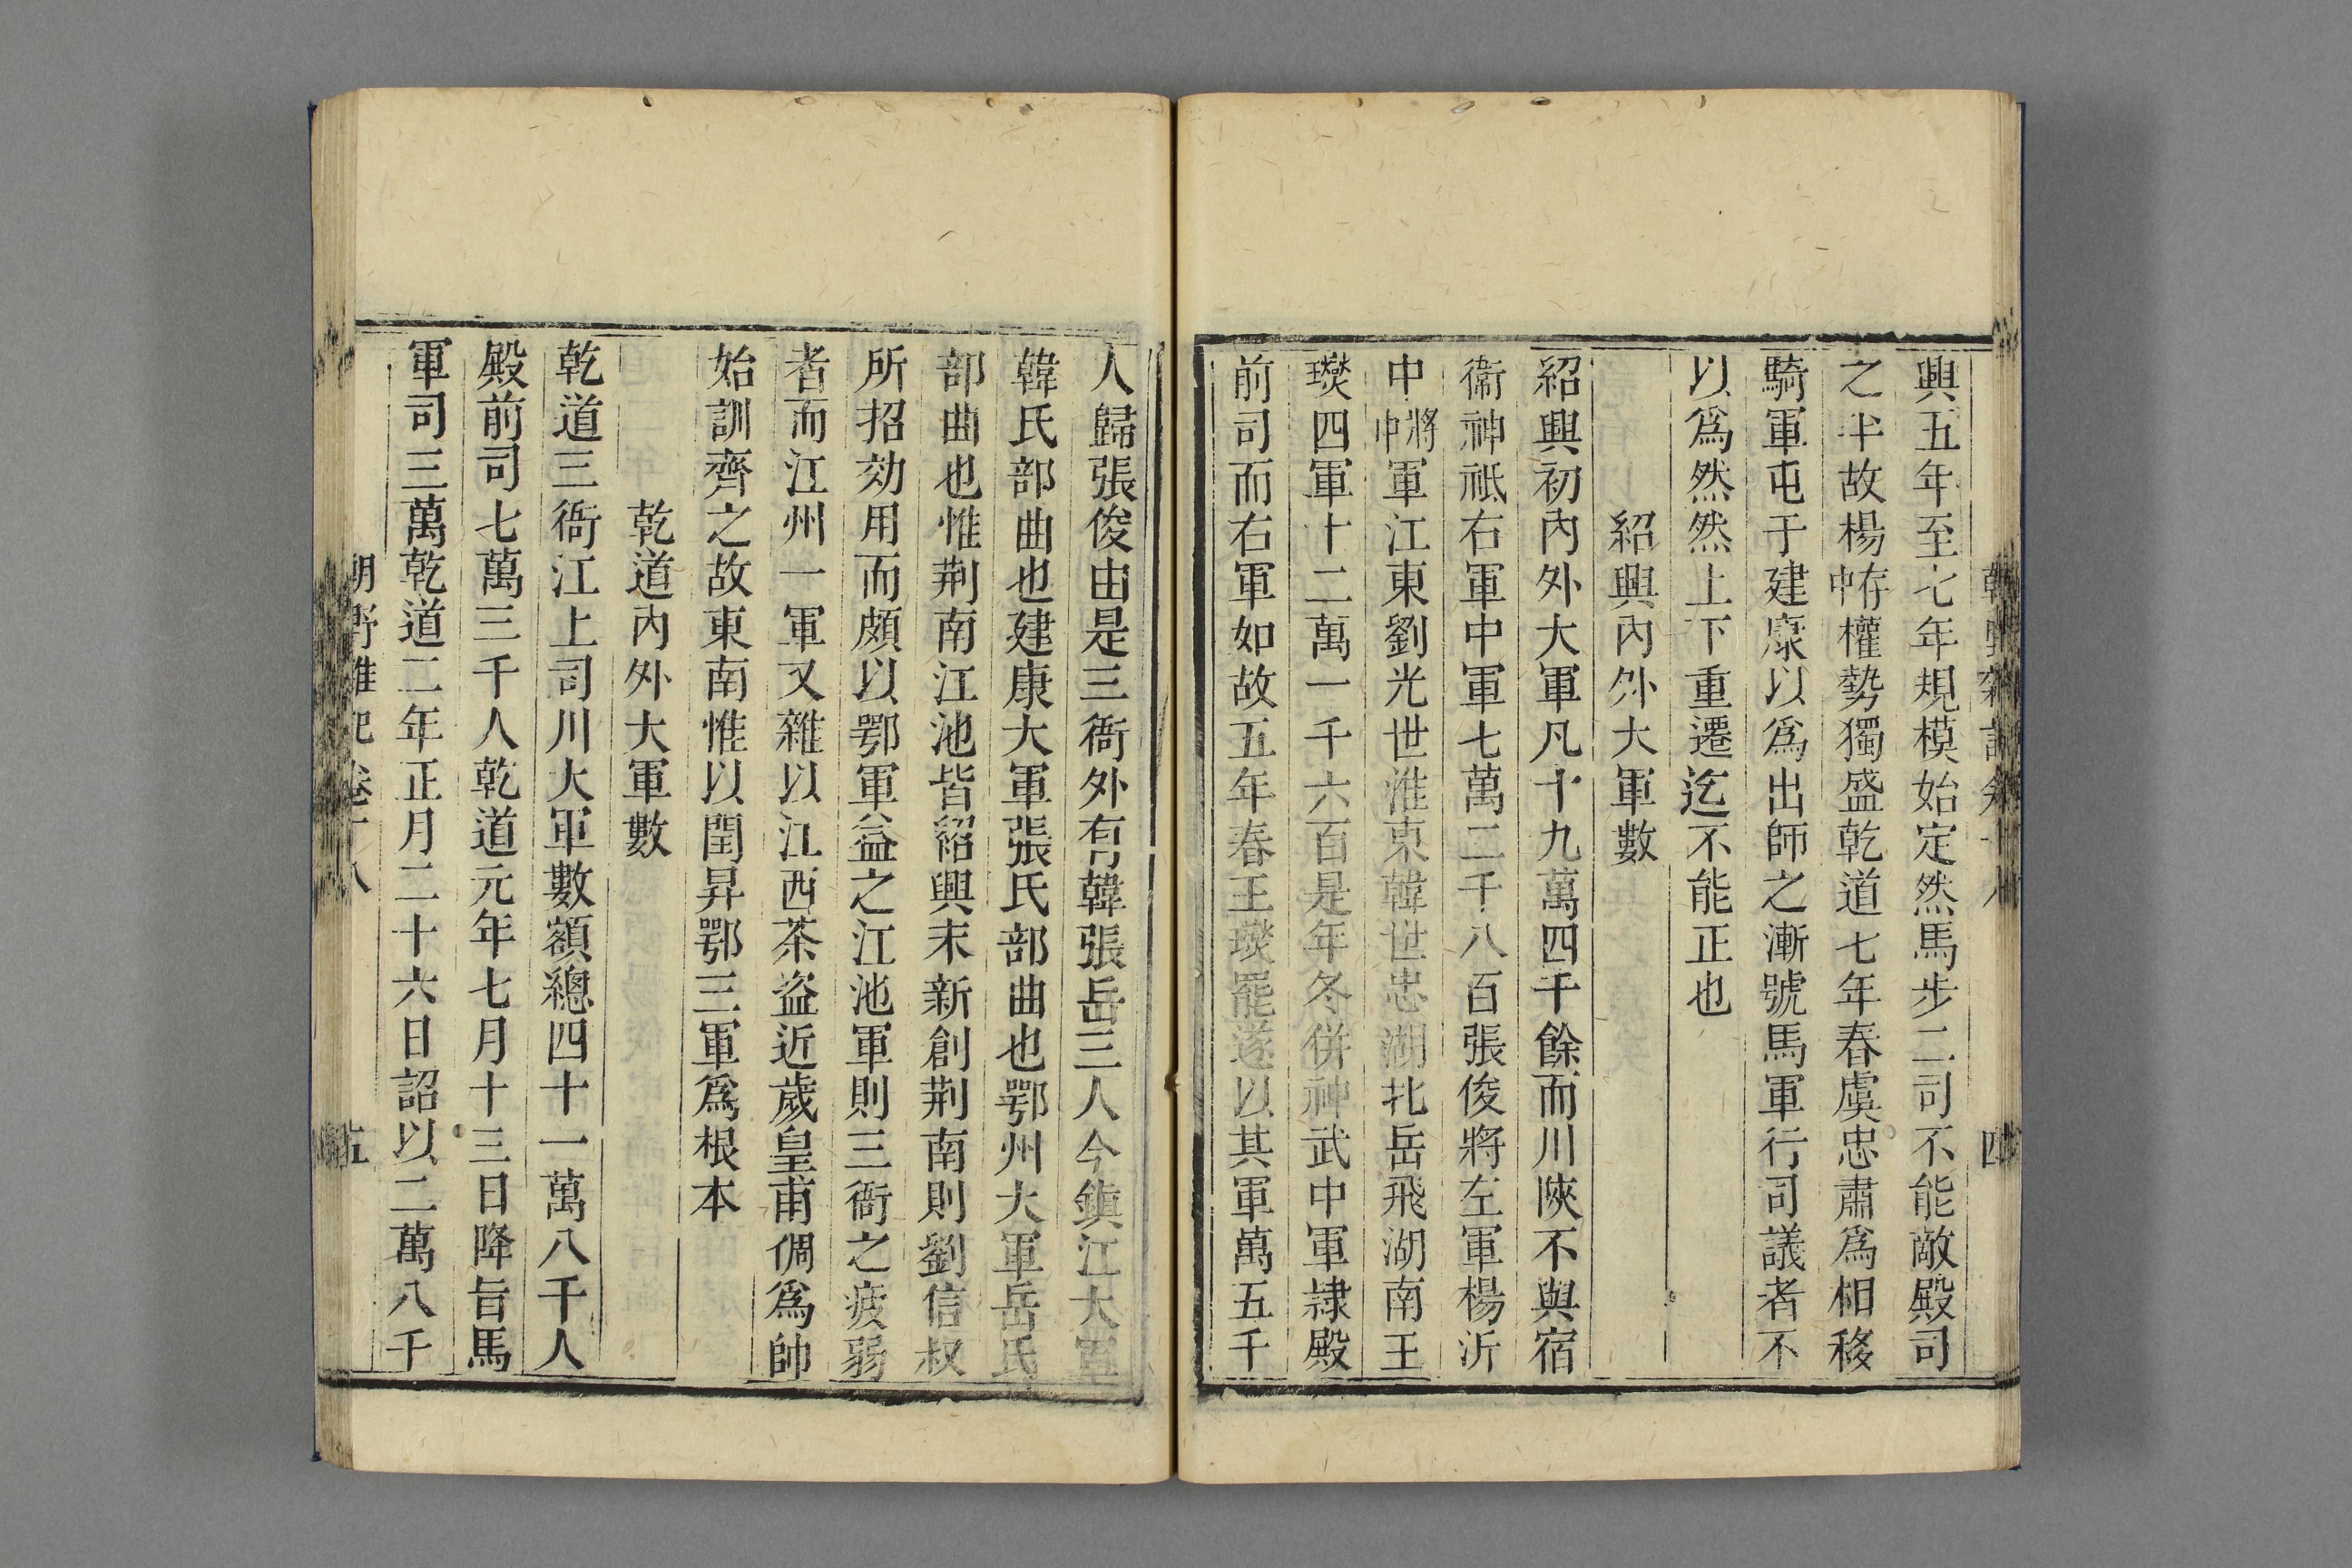 興五年至七年規模始定然馬步二司不能敵殿司
之半故楊存中權勢獨盛乾道七年春虞忠肅爲相移
騎軍屯于建康以爲出師之漸號馬軍行司議者不
以爲然然上下重遷迄不能正也
紹興內外大軍數
紹興初內外大軍凡十九萬四千餘而川陝不與宿
衞神祗右軍中軍七萬二千八百張俊將左軍楊沂
中將中軍江東劉光世淮東韓世忠湖北岳飛湖南王
𤫉四軍十二萬一千六百是年冬併神武中軍隷殿
前司而右軍如故五年春王𤫉罷遂以其軍萬五千
人歸張俊由是三衙外有韓張岳三人今鎮江大軍
韓氏部曲也建康大軍張氏部曲也鄂州大軍岳氏
部曲也惟荆南江池皆紹興末新創荆南則劉信叔
所招効用而頗以鄂軍益之江池軍則三衙之疲弱
者而江州一軍又雜以江西茶盜近歲皇甫倜爲帥
始訓齊之故東南惟以閏昇鄂三軍爲根本
乾道內外大軍數
乾道三衙江上司川大軍數額總四十一萬八千人
殿前司七萬三千人乾道元年七月十三日降旨馬
軍司三萬乾道二年正月二十六日詔以二萬八千
朝野雜記卷十八
五